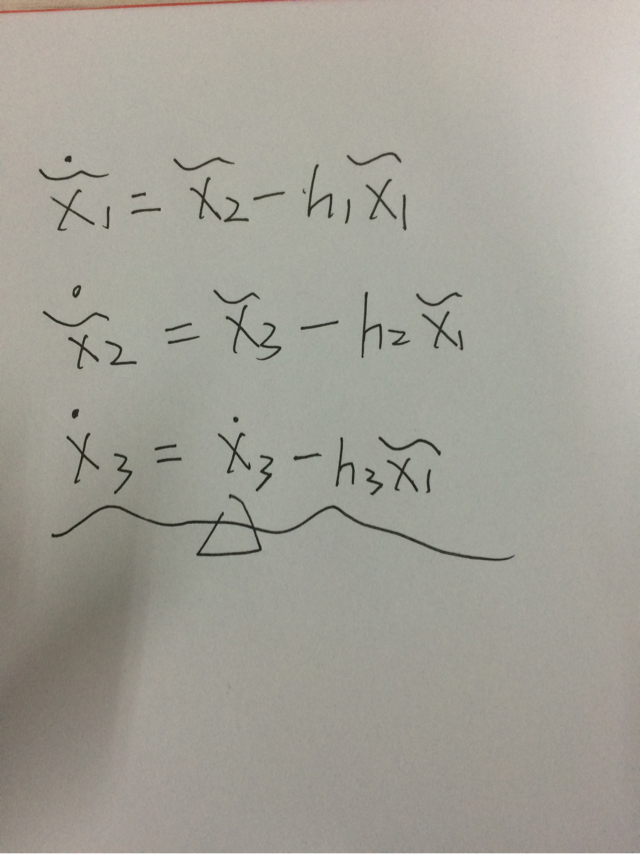 $\dot{\tilde{x}}_1 = \tilde{x}_2 - h_1 \tilde{x}_1$
$\dot{\tilde{x}}_2 = \tilde{x}_3 - h_2 \tilde{x}_1$
$\dot{x}_3 = \dot{x}_3 - h_3 \tilde{x}_1$